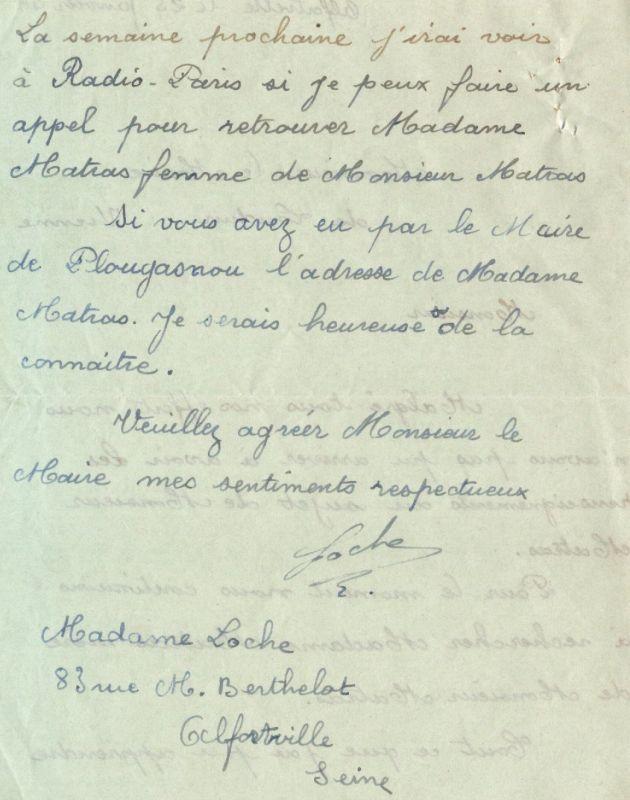 La semaine prochaine j'irai voir
à Radio-Paris si je peux faire un
appel pour retrouver Madame
Matras femme de Monsieur Matras
Si vous avez eu par le Maire
de Plougasnou l'adresse de Madame
Matras. Je serais heureuse de la
connaitre.
Veuillez agréer Monsieur le
Maire mes sentiments respectueux
Loche
Madame Loche
83 rue M. Berthelot
Alfortville
Seine